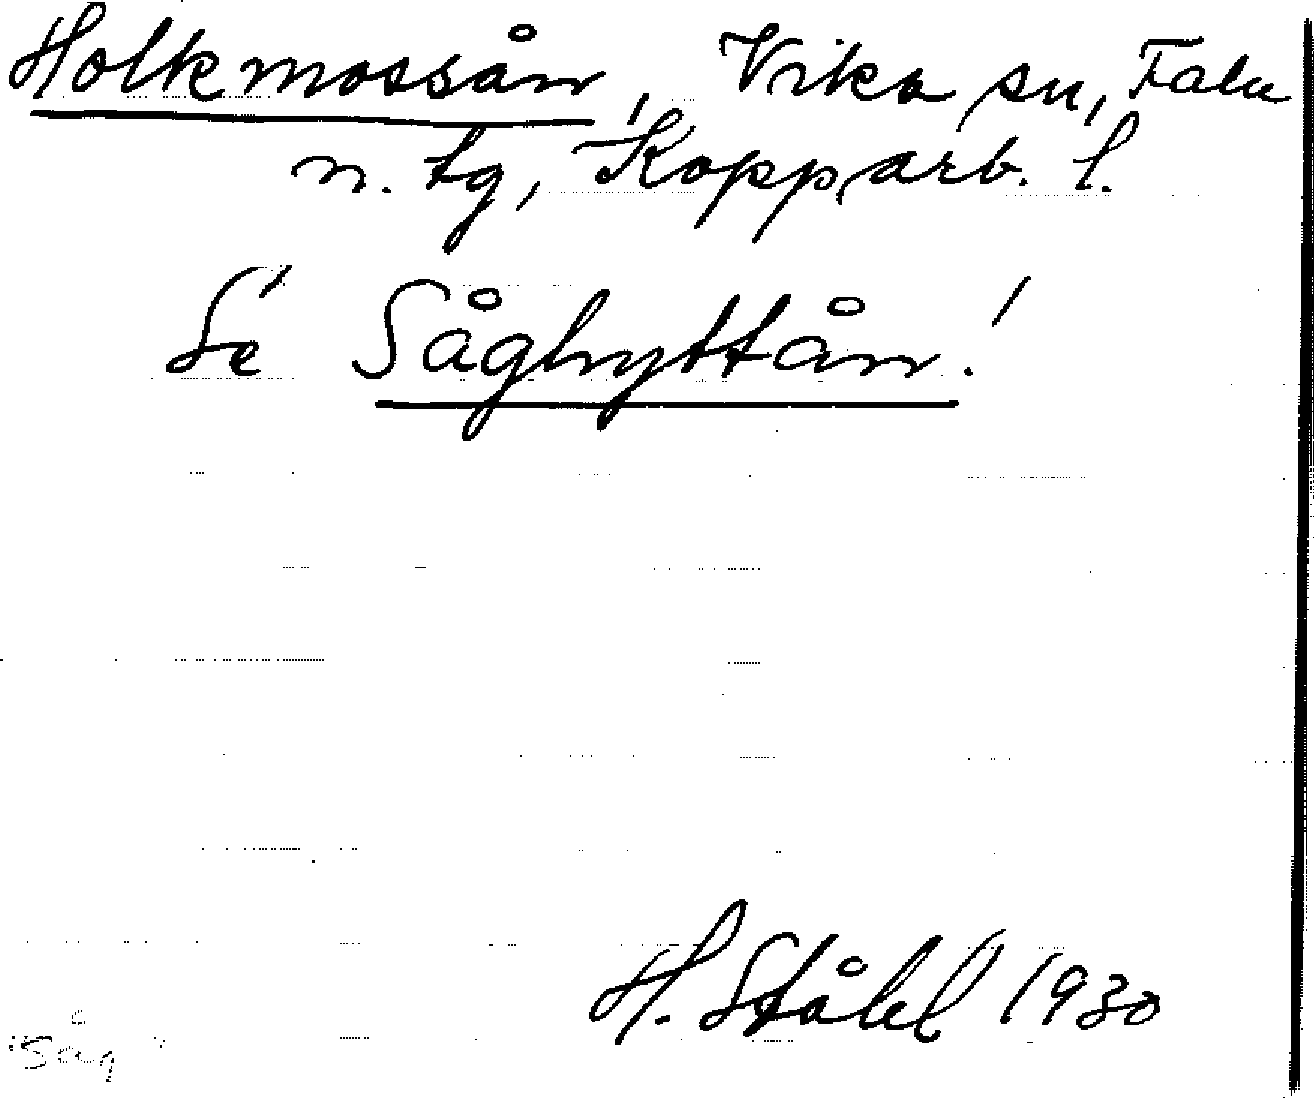 Holkmossån, Vika sn, Falu
n. tg, Kopparb. l.
Se Såghyttån!
H. Ståhl 1930
Såg